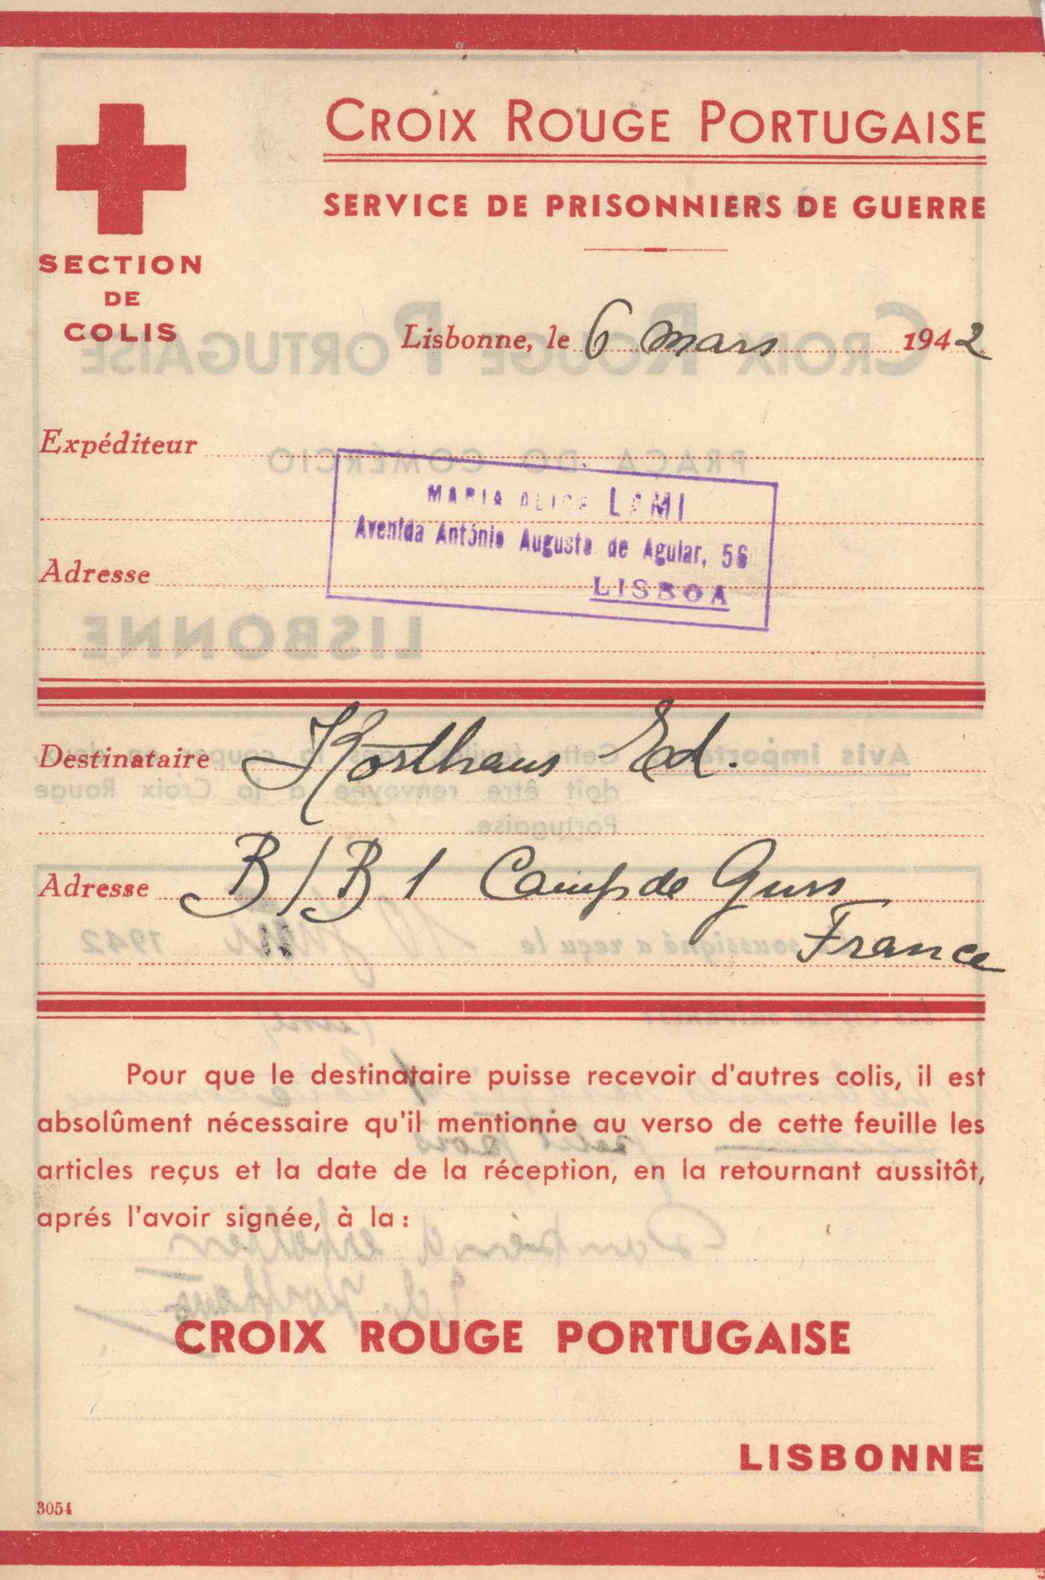 CROIX ROUGE PORTUGAISE
SERVICE DE PRISONNIERS DE GUERRE
SECTION
DE
COLIS
Lisbonne, le 6 mars 1942
Expéditeur
MARIA ALICE LAMI
Avenida António Augusto de Aguiar, 56
LISBOA
Adresse
Destinataire Korthaus Ed.
Adresse B/B 1 Camp de Gurs
France
Pour que le destinataire puisse recevoir d'autres colis, il est
absolûment nécessaire qu'il mentionne au verso de cette feuille les
articles reçus et la date de la réception, en la retournant aussitôt,
aprés l'avoir signée, à la:
CROIX ROUGE PORTUGAISE
LISBONNE
3054